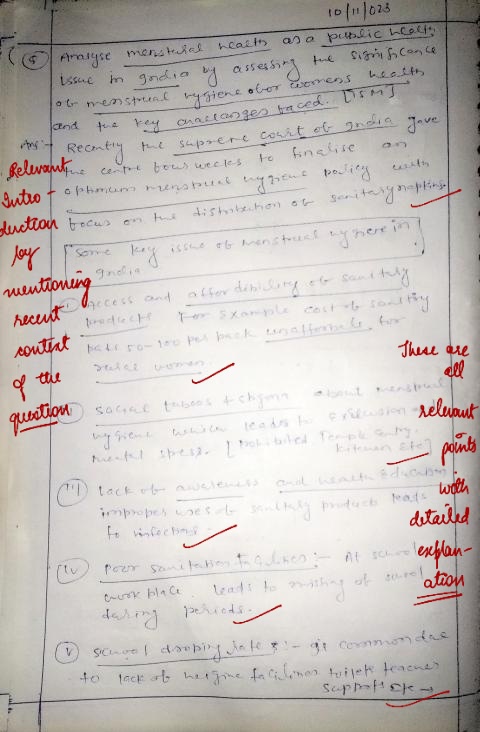 10/11/023
(5) Analyse menstrual health as a public health
issue in India by assessing the significance
of menstrual hygiene for womens health
and the key challenges faced. [15M]
Ans:- Recently the supreme court of India gave
the centre four weeks to finalise an
optimum menstrual hygiene policy with
focus on the distribution of sanitary napkins
Relevant
Intro-
duction
by
mentioning
recent
context
of the
question
Some key issue of menstrual hygiene in
India
(i) Access and affordibility of sanitary
products For Example cost of sanitry
pads 50-100 per pack unaffordable for
rural women.
(ii) Social taboos + stigma about menstrual
hygiene which leads to Exclusion
mental stress. [Prohibited Temple Entry,
kitchen Etc]
These are
all
relevant
points
with
detailed
explan-
ation
(iii) lack of awareness and health Education
improper uses of sanitary products leads
to infections.
(iv) Poor sanitation facilities:- At school
work place. leads to missing of school
during periods.
(v) School droping rates:- is common due
to lack of hygine facilities toilets teacher
support Etc →